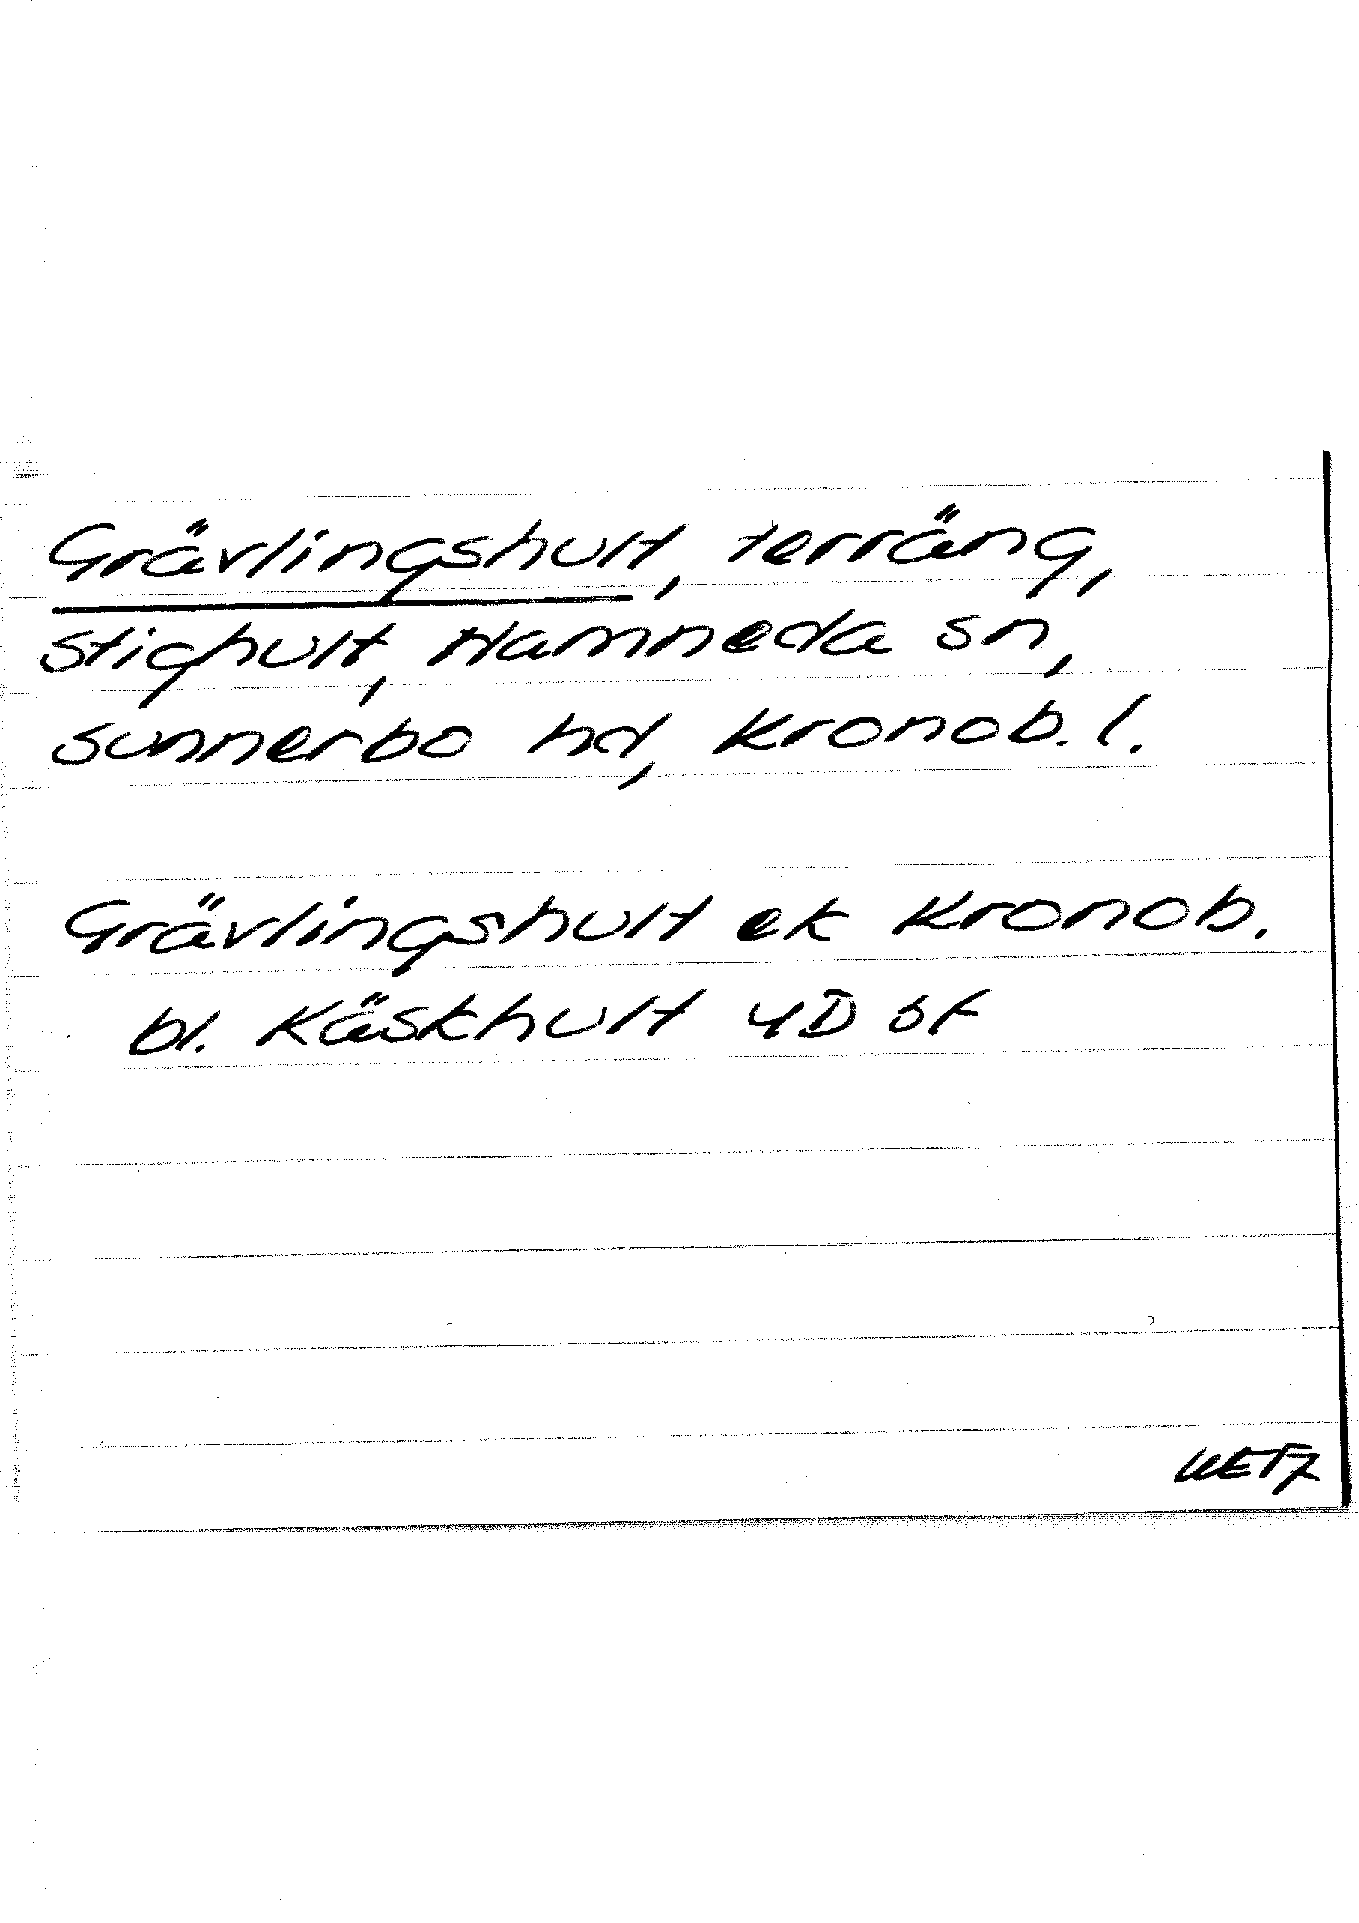 Grävlingshult, terräng,
Stighult, Hamneda sn,
Sunnerbo hd, Kronob. l.
Grävlingshult ek Kronob.
bl. Käskhult 4D 5f